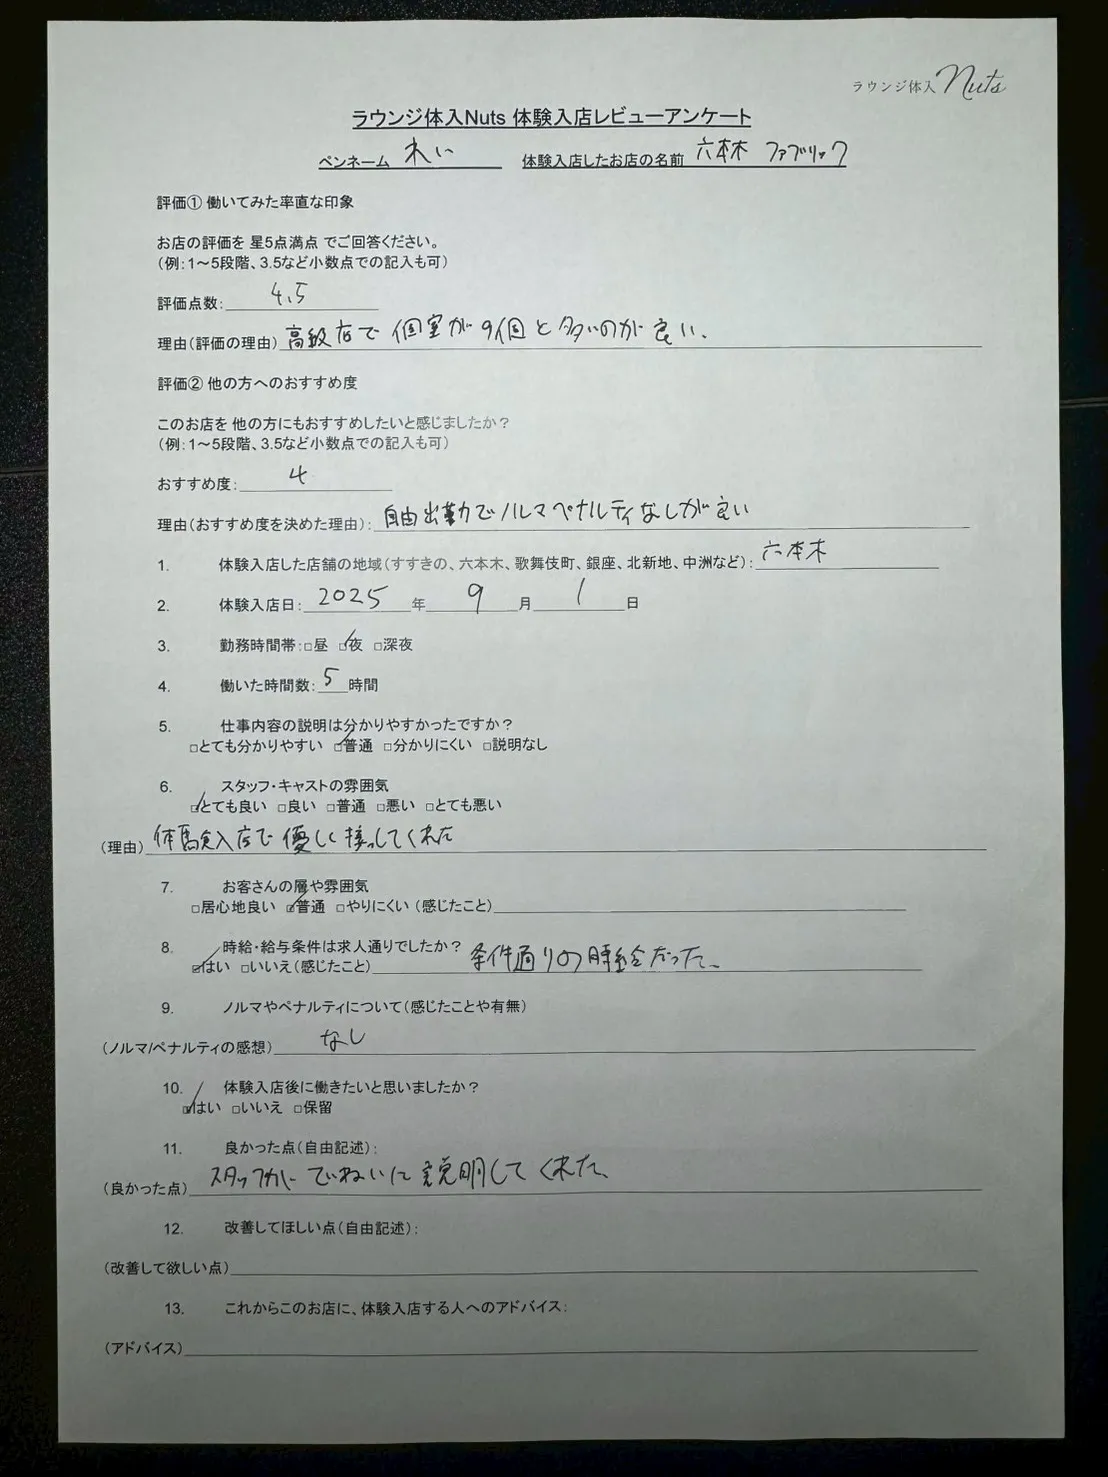 ラウンジ体入 Nuts
ラウンジ体入Nuts 体験入店レビューアンケート
ペンネーム れい 体験入店したお店の名前 六本木 ファブリック
評価① 働いてみた率直な印象
お店の評価を 星5点満点 でご回答ください。
（例：1～5段階、3.5など小数点での記入も可）
評価点数： 4.5
理由（評価の理由） 高級店で 個室が9個と多いのが良い。
評価② 他の方へのおすすめ度
このお店を 他の方にもおすすめしたいと感じましたか？
（例：1～5段階、3.5など小数点での記入も可）
おすすめ度： 4
理由（おすすめ度を決めた理由）： 自由出勤でノルマペナルティなしが良い
1. 体験入店した店舗の地域（すすきの、六本木、歌舞伎町、銀座、北新地、中洲など）： 六本木
2. 体験入店日： 2025 年 9 月 1 日
3. 勤務時間帯：□昼 ☑夜 □深夜
4. 働いた時間数： 5 時間
5. 仕事内容の説明は分かりやすかったですか？
□とても分かりやすい ☑普通 □分かりにくい □説明なし
6. スタッフ・キャストの雰囲気
☑とても良い □良い □普通 □悪い □とても悪い
（理由） 体験入店で優しく接してくれた
7. お客さんの層や雰囲気
□居心地良い ☑普通 □やりにくい （感じたこと）
8. 時給・給与条件は求人通りでしたか？
☑はい □いいえ（感じたこと） 条件通りの時給だった。
9. ノルマやペナルティについて（感じたことや有無）
（ノルマ/ペナルティの感想） なし
10. 体験入店後に働きたいと思いましたか？
☑はい □いいえ □保留
11. 良かった点（自由記述）：
（良かった点） スタッフがていねいに説明してくれた。
12. 改善してほしい点（自由記述）：
（改善して欲しい点）
13. これからこのお店に、体験入店する人へのアドバイス：
（アドバイス）